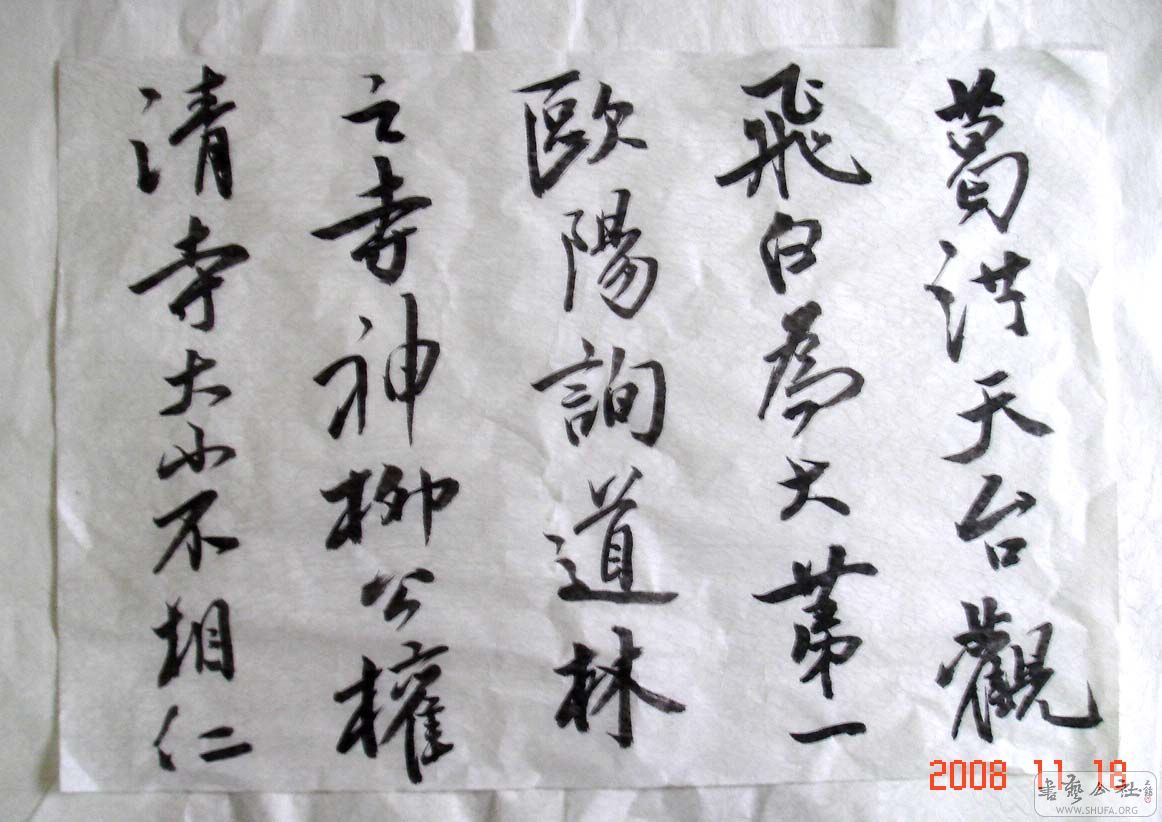 葛洪天台觀
飛白為大第一
歐陽詢道林
之寺神柳公權
清寺大小不相仁
2008 11 18
書藝公社
WWW.SHUFA.ORG